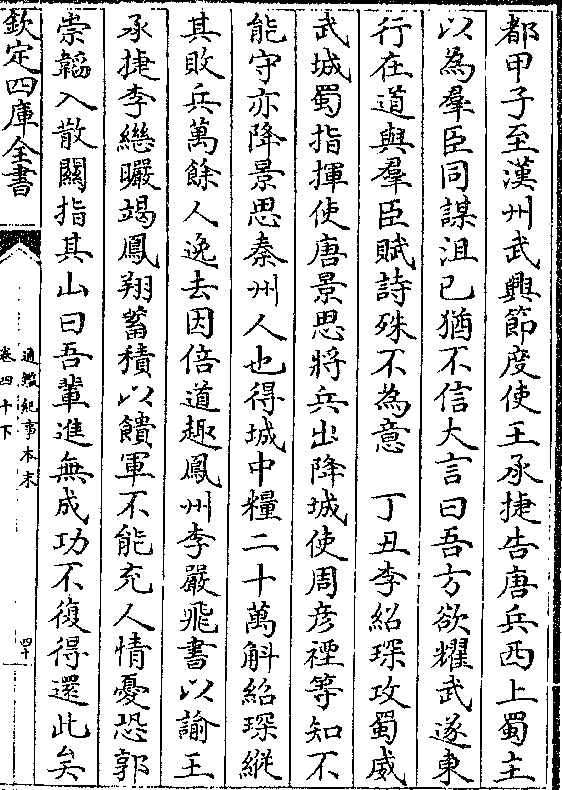 都甲子至漢州武興節度使王承捷告唐兵西上蜀主
以為羣臣同謀沮已猶不信大言曰吾方欲耀武遂東
行在道與羣臣賦詩殊不為意　丁丑李紹琛攻蜀威
武城蜀指揮使唐景思將兵出降城使周彦禋等知不
能守亦降景思秦州人也得城中糧二十萬斛紹琛縦
其敗兵萬餘人逸去因倍道趣鳳州李嚴飛書以諭王
承捷李繼曮竭鳳翔蓄積以饋軍不能充人情憂恐郭
崇韜入散關指其山曰吾輩進無成功不復得還此矣
欽定四庫全書
通鑑紀事本末
卷四十下
四十